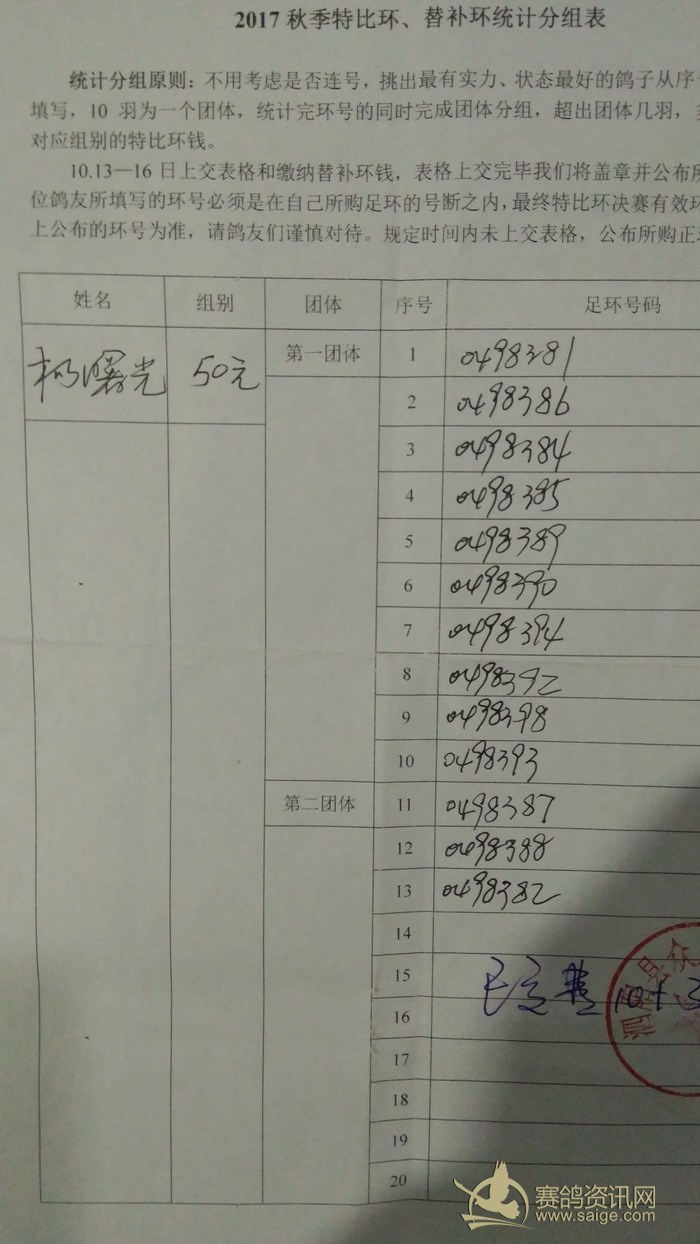 2017 秋季特比环、替补环统计分组表
统计分组原则：不用考虑是否连号，挑出最有实力、状态最好的鸽子从序
填写，10 羽为一个团体，统计完环号的同时完成团体分组，超出团体几羽，
对应组别的特比环钱。
10.13—16 日上交表格和缴纳替补环钱，表格上交完毕我们将盖章并公布所
位鸽友所填写的环号必须是在自己所购足环的号断之内，最终特比环决赛有效环
上公布的环号为准，请鸽友们谨慎对待。规定时间内未上交表格，公布所购正
姓名 组别 团体 序号 足环号码
杨曙光 50元 第一团体 1 0498381
2 0498386
3 0498384
4 0498385
5 0498389
6 0498390
7 0498394
8 0498392
9 0498398
10 0498393
第二团体 11 0498387
12 0498388
13 0498382
14
15
16
17
18
19
20
赛鸽资讯网
www.saige.com